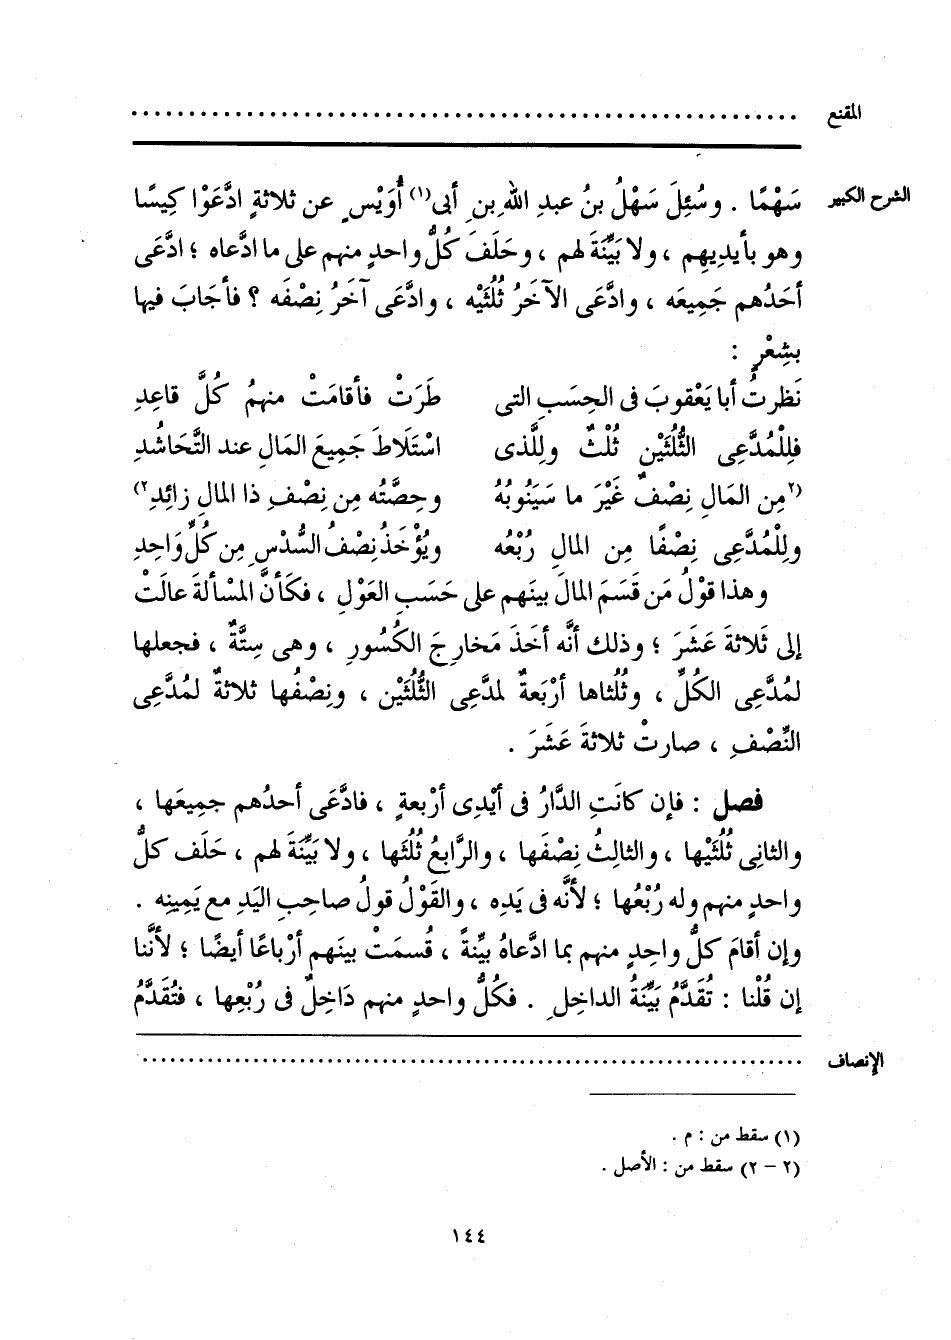 المقنع ........................................................
الشرح الكبير سَهْمًا . وسُئِلَ سَهْلُ بنُ عبدِ اللهِ بنِ أبى(١) أُوَيْسٍ عن ثلاثةٍ ادَّعَوْا كِيسًا
وهو بأيدِيهِم ، ولا بَيِّنَةَ لهم ، وحَلَفَ كُلُّ واحدٍ منهم على ما ادَّعاه ؛ ادَّعَى
أحَدُهم جَمِيعَه ، وادَّعَى الآخَرُ ثُلُثَيْه ، وادَّعَى آخَرُ نِصْفَه ؟ فأجَابَ فيها
بشِعْرٍ :
نَظرتُ أبا يَعْقوبَ فى الحِسَبِ التى طَرَتْ فأقامَتْ منهمُ كُلَّ قاعِدِ
فلِلْمُدَّعِى الثُّلُثَيْنِ ثُلْثٌ وللَّذى اسْتَلَاطَ جَمِيعَ المَالِ عند التَّحَاشُدِ
(٢مِن المَالِ نِصْفٌ غَيْرَ ما سَيَنُوبُهُ وحِصَّتُه مِن نِصْفِ ذا المالِ زائِدِ٢)
ولِلْمُدَّعِى نِصْفًا مِن المالِ رُبْعُه ويُؤْخَذُ نِصْفُ السُّدْسِ مِن كُلِّ وَاحِدِ
وهذا قَوْلُ مَن قَسَمَ المالَ بينَهم على حَسَبِ العَوْلِ ، فكَأنَّ المَسْألةَ عالَتْ
إلى ثَلاثةَ عَشَرَ ؛ وذلك أنَّه أخَذَ مَخارِجَ الكُسُورِ ، وهى سِتَّةٌ ، فجعلها
لمُدَّعِى الكُلِّ ، وثُلُثاها أرْبَعةٌ لمدَّعِى الثُّلُثَيْنِ ، ونِصْفُها ثلاثةٌ لمُدَّعِى
النِّصْفِ ، صارتْ ثلاثةَ عَشَرَ .
فصل : فإن كانَتِ الدَّارُ فى أيْدِى أرْبعةٍ ، فادَّعَى أحدُهم جميعَها ،
والثانِى ثُلُثَيْها ، والثالِثُ نِصْفَها ، والرَّابعُ ثُلُثَها ، ولا بَيِّنَةَ لهم ، حَلَف كلُّ
واحدٍ منهم وله رُبْعُها ؛ لأنَّه فى يَدِه ، والقَوْلُ قولُ صاحِبِ اليَدِ مع يَمِينِه .
وإن أقامَ كلُّ واحِدٍ منهم بما ادَّعاهُ بيِّنةً ، قُسمَتْ بينَهم أرْباعًا أيضًا ؛ لأنَّنا
إن قُلْنا : تُقَدَّمُ بَيِّنَةُ الداخلِ . فكُلُّ واحدٍ منهم دَاخِلٌ فى رُبْعِها ، فتُقَدَّمُ
الإنصاف ........................................................
(١) سقط من : م .
(٢ - ٢) سقط من : الأصل .
١٤٤